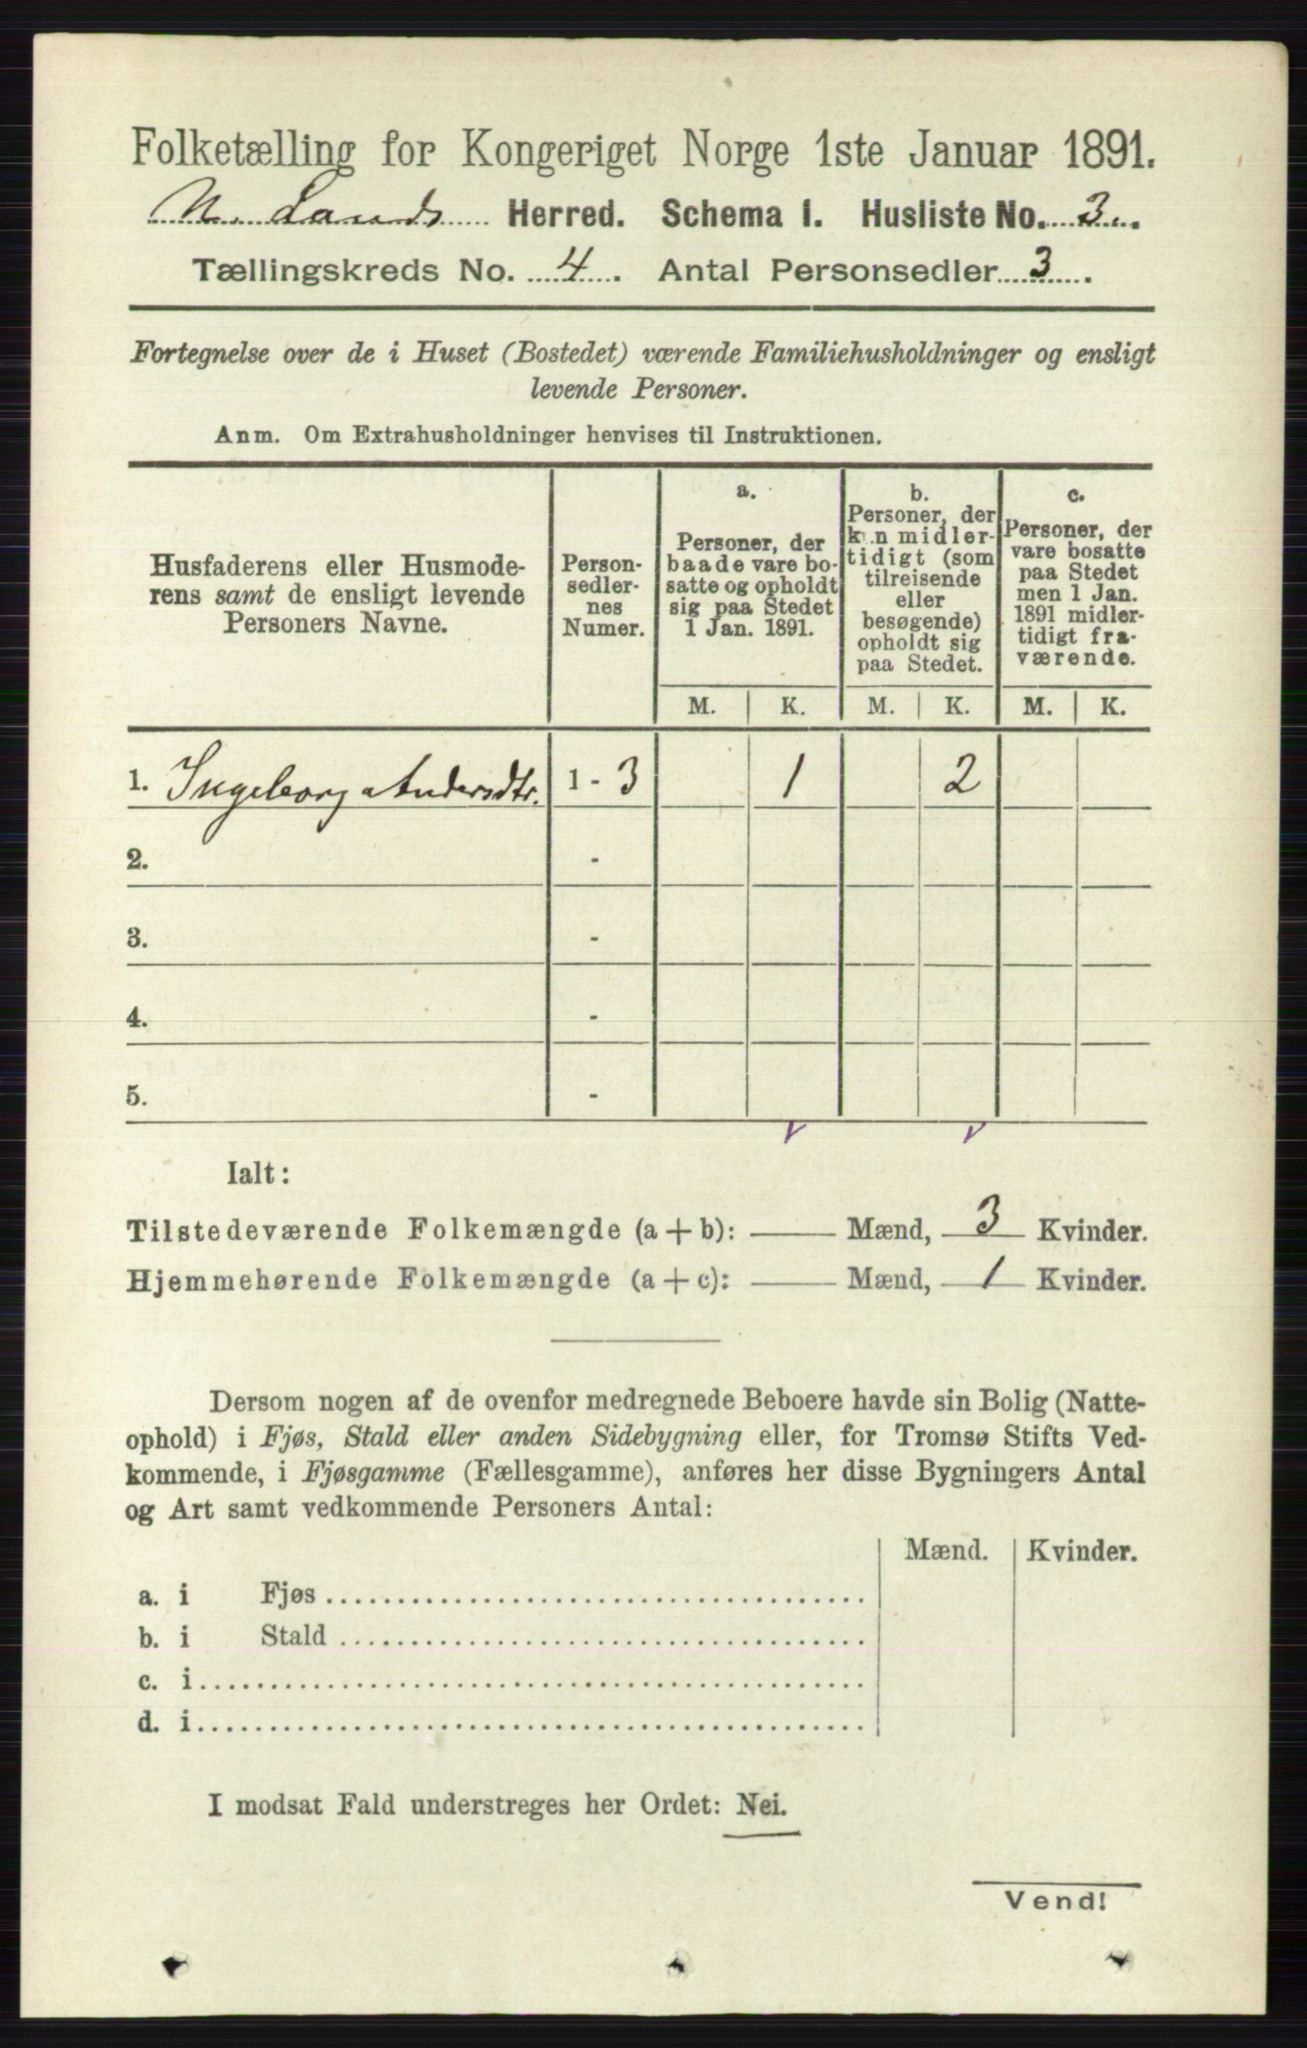 Folketælling for Kongeriget Norge 1ste Januar 1891.
N. Lands Herred. Schema 1. Husliste No. 3.
Tællingskreds No. 4. Antal Personsedler 3.
Fortegnelse over de i Huset (Bostedet) værende Familiehusholdninger og ensligt
levende Personer.
Anm. Om Extrahusholdninger henvises til Instruktionen.
Husfaderens eller Husmode-
rens samt de ensligt levende
Personers Navne.
Person-
sedler-
nes
Numer.
a.
Personer, der
baade vare bo-
satte og opholdt
sig paa Stedet
1 Jan. 1891.
b.
Personer, der
kun midler-
tidigt (som
tilreisende
eller
besøgende)
opholdt sig
paa Stedet.
c.
Personer, der
vare bosatte
paa Stedet
men 1 Jan.
1891 midler-
tidigt fra-
værende.
M. K. M. K. M. K.
1. Ingeborg Andersdtr. 1 - 3 1 2
2. -
3. -
4. -
5. -
Ialt:
Tilstedeværende Folkemængde (a + b): — Mænd, 3 Kvinder.
Hjemmehørende Folkemængde (a + c): — Mænd, 1 Kvinder.
Dersom nogen af de ovenfor medregnede Beboere havde sin Bolig (Natte-
ophold) i Fjøs, Stald eller anden Sidebygning eller, for Tromsø Stifts Ved-
kommende, i Fjøsgamme (Fællesgamme), anføres her disse Bygningers Antal
og Art samt vedkommende Personers Antal:
Mænd. Kvinder.
a. i Fjøs
b. i Stald
c. i
d. i
I modsat Fald understreges her Ordet: Nei.
Vend!